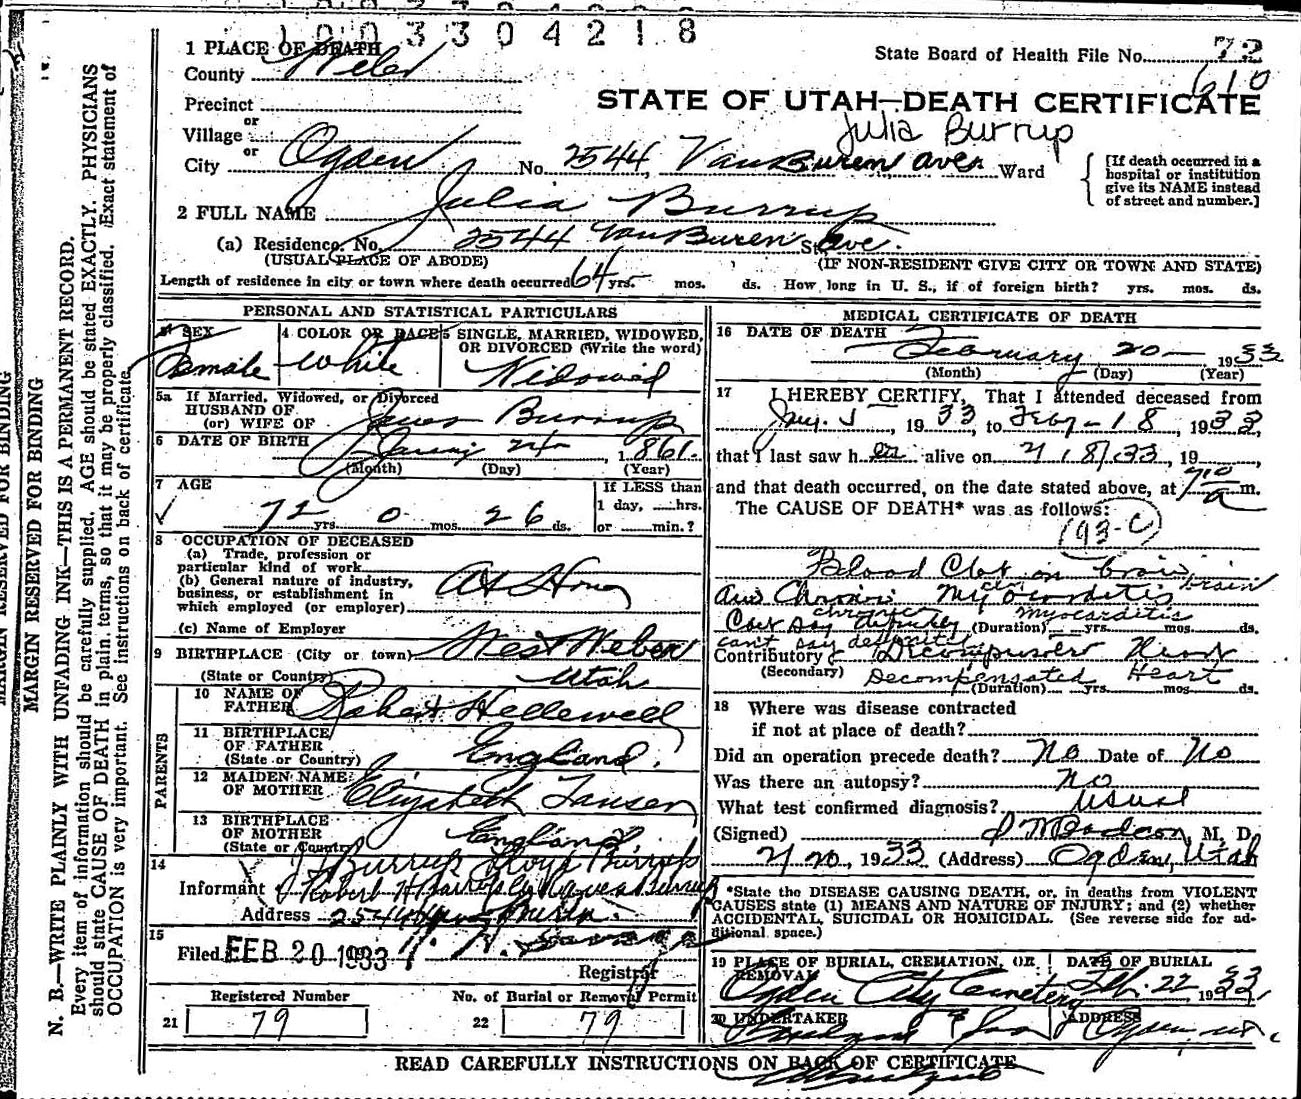 1003304218
1 PLACE OF DEATH
State Board of Health File No. 72
County Weber
610
Precinct
STATE OF UTAH—DEATH CERTIFICATE
or
Julia Burrup
Village
or
City Ogden No. 2544 Van Buren ave. Ward
[If death occurred in a hospital or institution give its NAME instead of street and number.]
2 FULL NAME Julia Burrup
(a) Residence. No. 2544 Van Buren St. ave.
(USUAL PLACE OF ABODE) (IF NON-RESIDENT GIVE CITY OR TOWN AND STATE)
Length of residence in city or town where death occurred 64 yrs. mos. ds. How long in U. S., if of foreign birth? yrs. mos. ds.
PERSONAL AND STATISTICAL PARTICULARS
3 SEX
Female
4 COLOR OR RACE
White
5 SINGLE, MARRIED, WIDOWED,
OR DIVORCED (Write the word)
Widowed
5a If Married, Widowed, or Divorced
HUSBAND OF
(or) WIFE OF James Burrup
6 DATE OF BIRTH 24 1861.
(Month) (Day) (Year)
7 AGE
If LESS than
1 day, hrs.
72 yrs. 0 mos. 26 ds. or min.?
8 OCCUPATION OF DECEASED
(a) Trade, profession or
particular kind of work
(b) General nature of industry,
business, or establishment in
which employed (or employer)
At Home
(c) Name of Employer
9 BIRTHPLACE (City or town) West Weber
(State or Country) Utah
PARENTS
10 NAME OF
FATHER Robert Hellewell
11 BIRTHPLACE
OF FATHER
(State or Country) England.
12 MAIDEN NAME
OF MOTHER Elizabeth
13 BIRTHPLACE
OF MOTHER
(State or Country) England
14
Burrup Lloyd Burrup
Informant Robert H Burrup Burrup
Address 2544 Van Buren.
15
Filed FEB 20 1933
Registrar
Registered Number
21 79
No. of Burial or Removal Permit
22 79
MEDICAL CERTIFICATE OF DEATH
16 DATE OF DEATH
February 20 1933
(Month) (Day) (Year)
17 I HEREBY CERTIFY, That I attended deceased from
1933, to Feby-18, 1933,
that I last saw her alive on 2/18/33, 19
and that death occurred, on the date stated above, at 7 10 a m.
The CAUSE OF DEATH* was as follows:
(93-C)
Blood Clot on brain
brain
and Chronic Myocarditis
chronic myocarditis
Cant say definitely (Duration) yrs. mos. ds.
can't say definitely
Contributory Decompensated Heart
(Secondary) Decompensated Heart
(Duration) yrs. mos. ds.
18 Where was disease contracted
if not at place of death?
Did an operation precede death? No Date of No
Was there an autopsy? no
What test confirmed diagnosis? usual
(Signed) M. D.
2/20, 1933 (Address) Ogden, Utah
*State the DISEASE CAUSING DEATH, or, in deaths from VIOLENT
CAUSES state (1) MEANS AND NATURE OF INJURY; and (2) whether
ACCIDENTAL, SUICIDAL OR HOMICIDAL. (See reverse side for additional space.)
19 PLACE OF BURIAL, CREMATION, OR
REMOVAL
Ogden City Cemetery
DATE OF BURIAL
Feb. 22, 1933,
20 UNDERTAKER
& Son
ADDRESS
Ogden ut.
READ CAREFULLY INSTRUCTIONS ON BACK OF CERTIFICATE
MARGIN RESERVED FOR BINDING
MARGIN RESERVED FOR BINDING
N. B.—WRITE PLAINLY WITH UNFADING INK—THIS IS A PERMANENT RECORD.
Every item of information should be carefully supplied. AGE should be stated EXACTLY. PHYSICIANS
should state CAUSE OF DEATH in plain terms, so that it may be properly classified. Exact statement of
OCCUPATION is very important. See instructions on back of certificate.